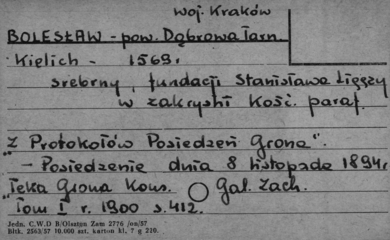 woj. Kraków
BOLESŁAW - pow. Dąbrowa Tarn.
Kielich - 1569r.
srebrny, fundacji Stanisława Ligęzy
w zakrystii Kość. paraf.
"Z Protokołów Posiedzeń Grona".
- Posiedzenie dnia 8 listopada 1894r.
"Teka Grona Kons. Gal. Zach.
Tom I r. 1900 s. 412.
Jedn. C.W.D B/Olsztyn Zam 2776 /on/57
Bltk. 2563/57 10.000 szt. karton kl. 7 g 220.